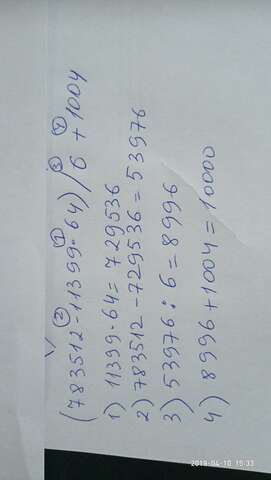 ② ① ③ ④
(783512-11399·64)/6 + 1004
1) 11399·64= 729536
2) 783512-729536=53976
3) 53976:6=8996
4) 8996+1004=10000
2019-04-10 15:33